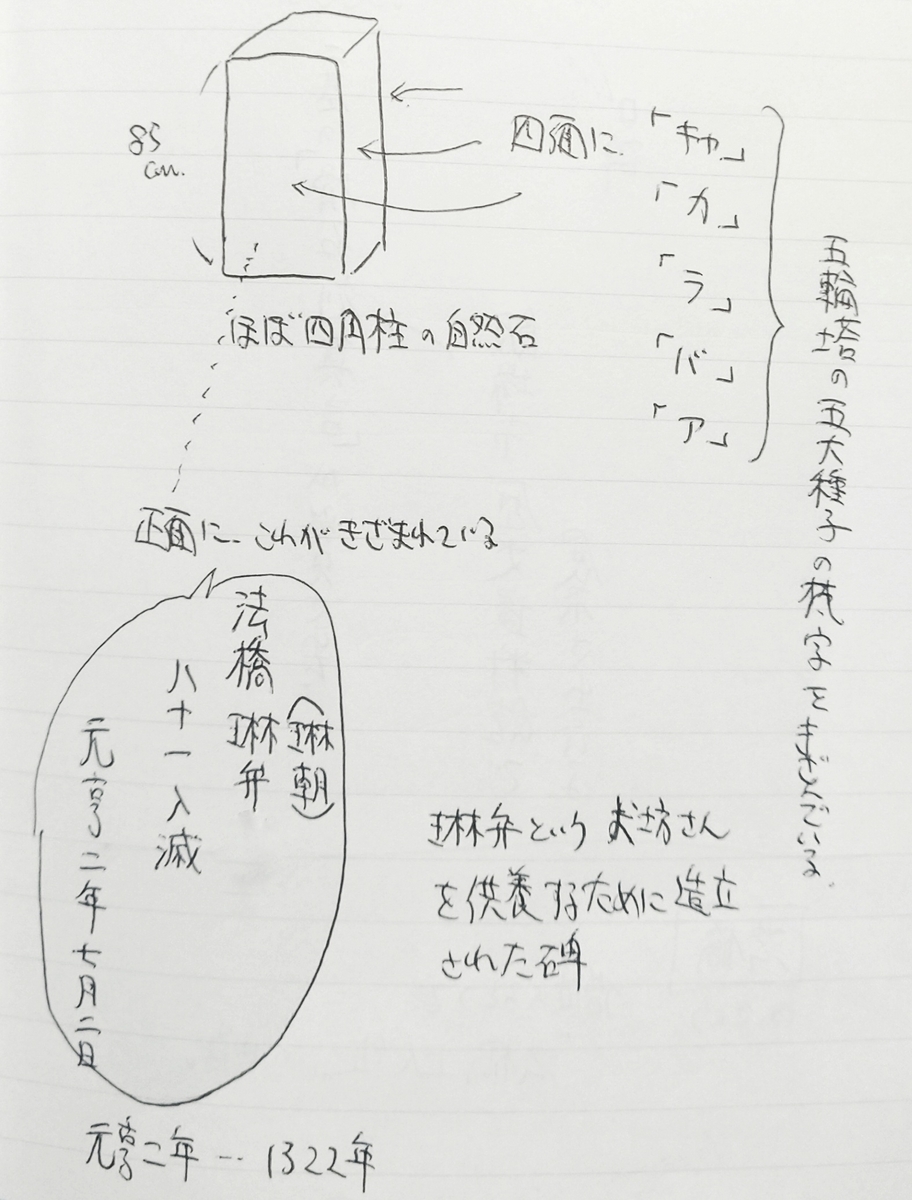 85
cm.
四面に
「キャ」
「カ」
「ラ」
「バ」
「ア」
五輪塔の五大種子の梵字をきざんでいる。
ほぼ四角柱の自然石
正面に、これがきざまれている
(琳朝)
法橋 琳弁
八十一入滅
元亨二年七月二日
琳弁という お坊さん
を供養するために造立
された碑
元亨二年 … 1322年